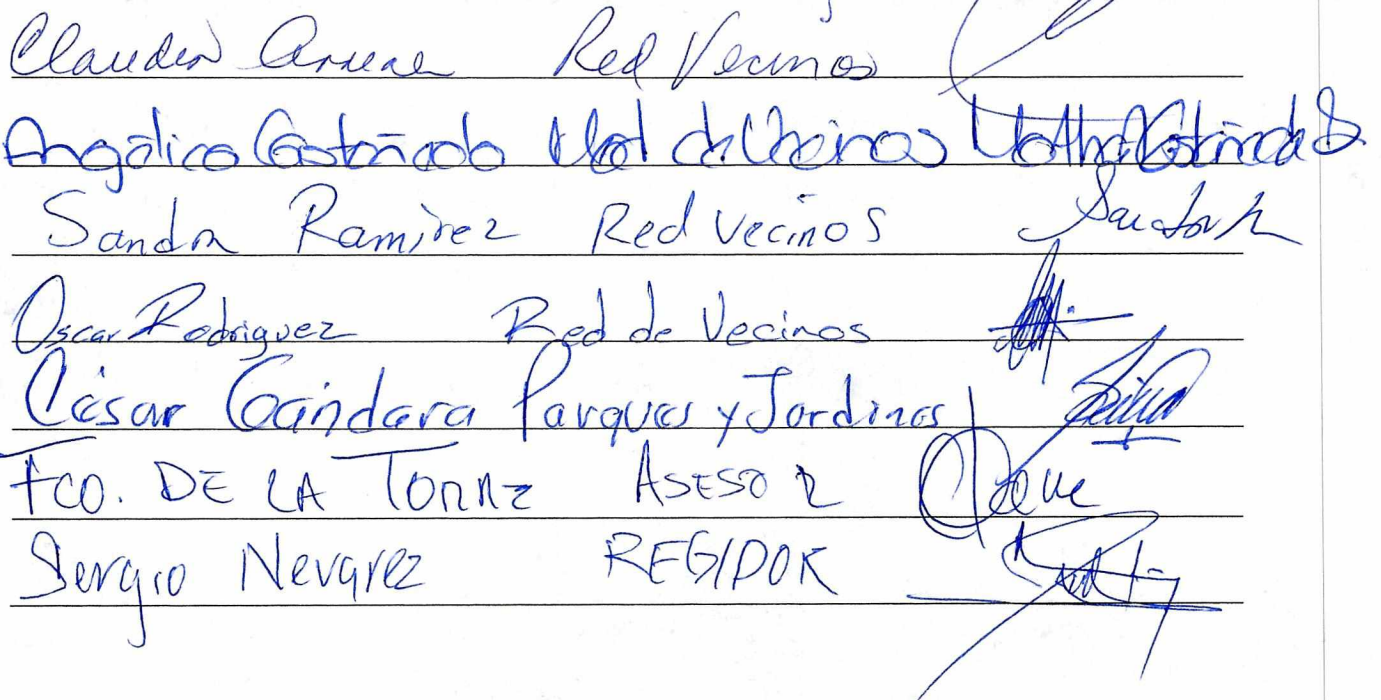 Claudia Red Vecinos
Angélica Castañeda Red de Vecinos Castañeda S.
Sandra Ramirez Red Vecinos
Oscar Rodriguez Red de Vecinos
César Gándara Parques y Jardines
Fco. DE LA TORRE ASESOR
Sergio Nevarez REGIDOR